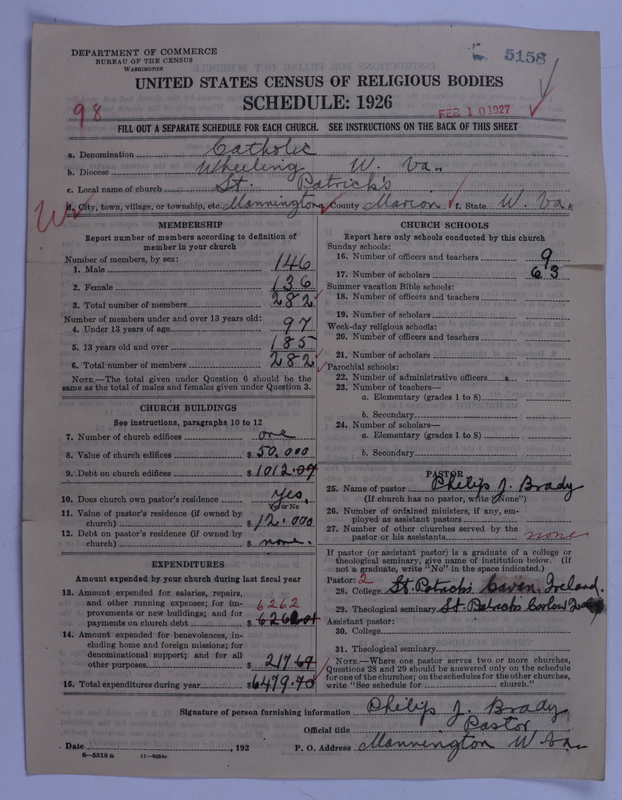 DEPARTMENT OF COMMERCE
BUREAU OF THE CENSUS
WASHINGTON
5158
UNITED STATES CENSUS OF RELIGIOUS BODIES
SCHEDULE: 1926
98
FEB 10 1927
FILL OUT A SEPARATE SCHEDULE FOR EACH CHURCH. SEE INSTRUCTIONS ON THE BACK OF THIS SHEET
a. Denomination Catholic
b. Diocese Wheeling W. Va.
c. Local name of church St. Patrick's
d. City, town, village, or township, etc. Mannington e. County Marion f. State W. Va.
MEMBERSHIP
Report number of members according to definition of member in your church
Number of members, by sex:
1. Male 146
2. Female 136
3. Total number of members 282
Number of members under and over 13 years old:
4. Under 13 years of age 97
5. 13 years old and over 185
6. Total number of members 282
NOTE.—The total given under Question 6 should be the
same as the total of males and females given under Question 3.
CHURCH BUILDINGS
See instructions, paragraphs 10 to 12
7. Number of church edifices one
8. Value of church edifices $ 50,000
9. Debt on church edifices $ 1012.04
10. Does church own pastor's residence Yes
Yes or No
11. Value of pastor's residence (if owned by
church) $ 12.000
12. Debt on pastor's residence (if owned by
church) $ none.
EXPENDITURES
Amount expended by your church during last fiscal year
13. Amount expended for salaries, repairs,
and other running expenses; for im-
provements or new buildings; and for
payments on church debt $ 6262
14. Amount expended for benevolences, in-
cluding home and foreign missions; for
denominational support; and for all
other purposes $ 217.69
15. Total expenditures during year $ 6479.70
CHURCH SCHOOLS
Report here only schools conducted by this church
Sunday schools:
16. Number of officers and teachers 9
17. Number of scholars 63
Summer vacation Bible schools:
18. Number of officers and teachers
19. Number of scholars
Week-day religious schools:
20. Number of officers and teachers
21. Number of scholars
Parochial schools:
22. Number of administrative officers
23. Number of teachers—
a. Elementary (grades 1 to 8)
b. Secondary
24. Number of scholars—
a. Elementary (grades 1 to 8)
b. Secondary
PASTOR
25. Name of pastor Philip J. Brady
(If church has no pastor, write "None")
26. Number of ordained ministers, if any, em-
ployed as assistant pastors
27. Number of other churches served by the
pastor or his assistants none
If pastor (or assistant pastor) is a graduate of a college or
theological seminary, give name of institution below. (If
not a graduate, write "No" in the space indicated.)
Pastor: 2
28. College St. Patrick's Cavan, Ireland.
29. Theological seminary St. Patrick's Carlow
Assistant pastor:
30. College
31. Theological seminary
NOTE.—Where one pastor serves two or more churches,
Questions 28 and 29 should be answered only on the schedule
for one of the churches; on the schedules for the other churches,
write "See schedule for church."
Signature of person furnishing information Philip J. Brady
Official title Pastor
Date , 192 P. O. Address Mannington W Va.
8—5518 a